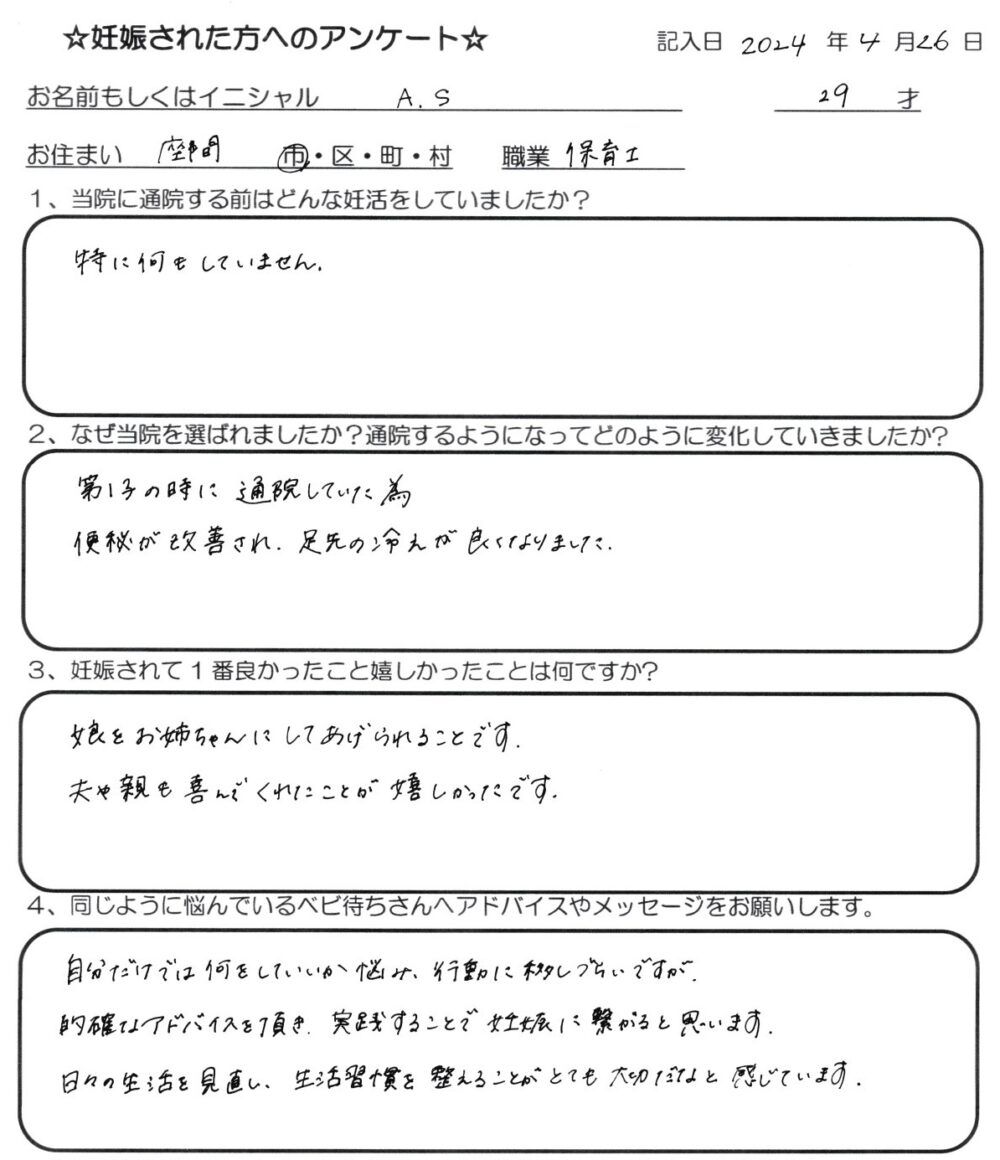 ☆妊娠された方へのアンケート☆ 記入日 2024 年 4 月 26 日
お名前もしくはイニシャル A.S 29 才
お住まい 座間 市・区・町・村 職業 保育士
1、当院に通院する前はどんな妊活をしていましたか？
特に何もしていません.
2、なぜ当院を選ばれましたか？通院するようになってどのように変化していきましたか?
第1子の時に通院していた為
便秘が改善され、足先の冷えが良くなりました.
3、妊娠されて1番良かったこと嬉しかったことは何ですか?
娘をお姉ちゃんにしてあげられることです.
夫や親も喜んでくれたことが嬉しかったです.
4、同じように悩んでいるベビ待ちさんへアドバイスやメッセージをお願いします。
自分だけでは何をしていいか悩み、行動に移しづらいですが、
的確なアドバイスを頂き、実践することで妊娠に繋がると思います.
日々の生活を見直し、生活習慣を整えることがとても大切だなと感じています.